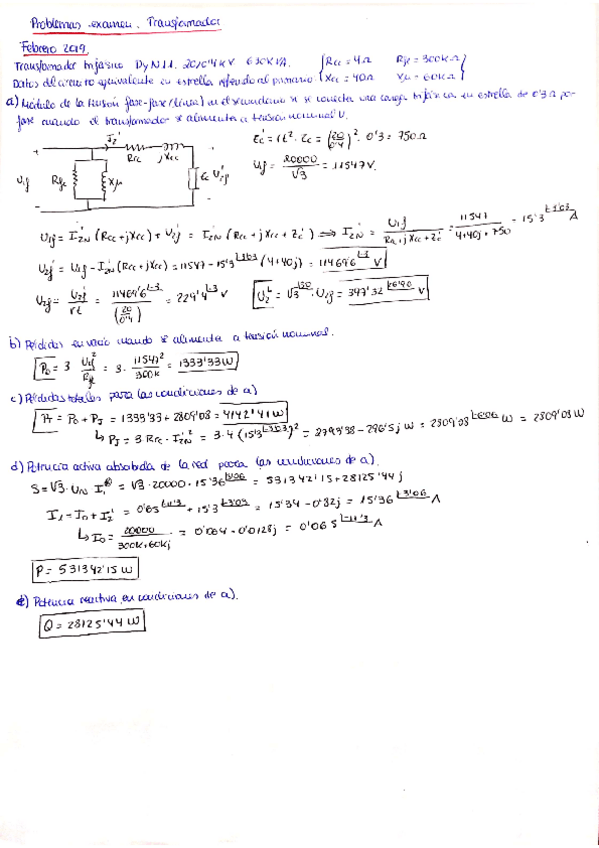 Problemas examen. Transformador
Febrero 2019
Transformador trifásico DyN11. 20/0'4 kV 630 kVA. { Rcc = 4Ω Rfe = 300kΩ
Datos del circuito equivalente en estrella referido al primario. Xcc = 40Ω Xμ = 60kΩ }
a) Módulo de la tensión fase-fase (línea) en el secundario si se conecta una carga trifásica en estrella de 0'3Ω por
fase cuando el transformador se alimenta a tensión nominal U.
+ I2' Rcc jXcc +
U1f Rfe Xμ Zc U2f'
Zc' = rt² · Zc = (20/0'4)² · 0'3 = 750Ω
U1f = 20000/√3 = 11547 V.
U1f = I2N' (Rcc + jXcc) + U2f' = I2N' (Rcc + jXcc + Zc') ⟹ I2N' = U1f/(Rcc + jXcc + Zc') = 11547/(4+40j+750) = 15'3∠-3'03 A
U2f' = U1f - I2N' (Rcc + jXcc) = 11547 - 15'3∠-3'03 (4+40j) = 11469'6∠-3 V
U2f = U2f'/rt = 11469'6∠-3/(20/0'4) = 229'4∠-3 V U2L = √3∠30 · U2f = 397'32∠26'90 V
b) Pérdidas en vacío cuando se alimenta a tensión nominal.
P0 = 3 U1f²/Rfe = 3 · 11547²/300k = 1333'33 W
c) Pérdidas totales para las condiciones de a)
PT = P0 + PJ = 1333'33 + 2809'08 = 4142'41 W
↳ PJ = 3 Rcc · I2N'² = 3 · 4 (15'3∠-3'03)² = 2793'38 - 296'5j W = 2809'08∠-6'06 W = 2809'08 W
d) Potencia activa absorbida de la red para las condiciones de a).
S = √3 · UN I1* = √3 · 20000 · 15'36∠3'06 = 531342'15 + 28125'44 j
I1 = I0 + I2' = 0'065∠-11'3 + 15'3∠-3'03 = 15'34 - 0'82j = 15'36∠-3'06 A
↳ I0 = 20000/(300k+60kj) = 0'064 - 0'0128j = 0'065∠-11'3 A
P = 531342'15 W
e) Potencia reactiva en condiciones de a).
Q = 28125'44 W